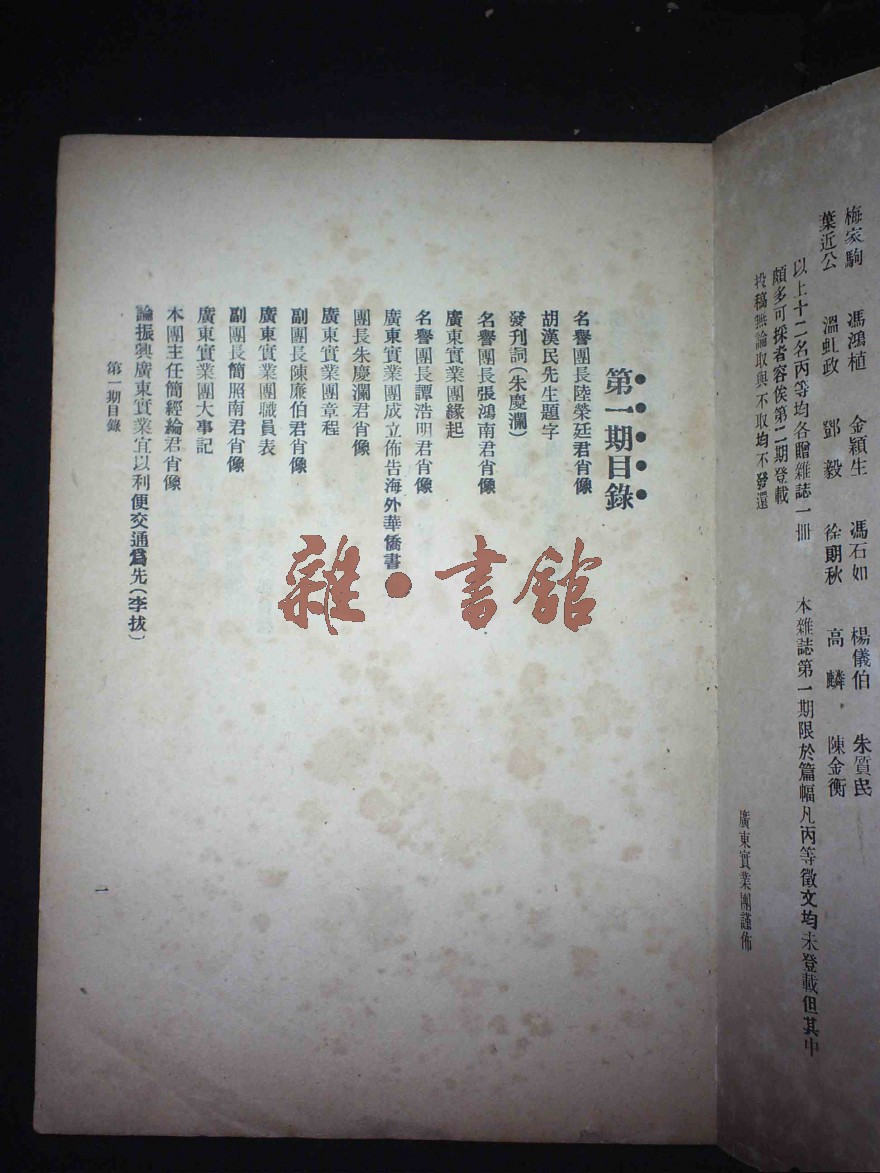 梅家駒 馮鴻植 金穎生 馮石如 楊儀伯 朱質民
葉近公 溫虬政 鄧毅 徐朗秋 高麟 陳金衡
以上十二名丙等均各贈雜誌一冊 本雜誌第一期限於篇幅凡丙等徵文均未登載但其中
頗多可採者容俟第二期登載
投稿無論取與不取均不發還
廣東實業團謹佈
第一期目錄
名譽團長陸榮廷君肖像
胡漢民先生題字
發刊詞(朱慶瀾)
名譽團長張鴻南君肖像
廣東實業團緣起
名譽團長譚浩明君肖像
廣東實業團成立佈告海外華僑書
團長朱慶瀾君肖像
廣東實業團章程
副團長陳廉伯君肖像
廣東實業團職員表
副團長簡照南君肖像
廣東實業團大事記
本團主任簡經綸君肖像
論振興廣東實業宜以利便交通爲先(李拔)
第一期目錄
一
雜·書館